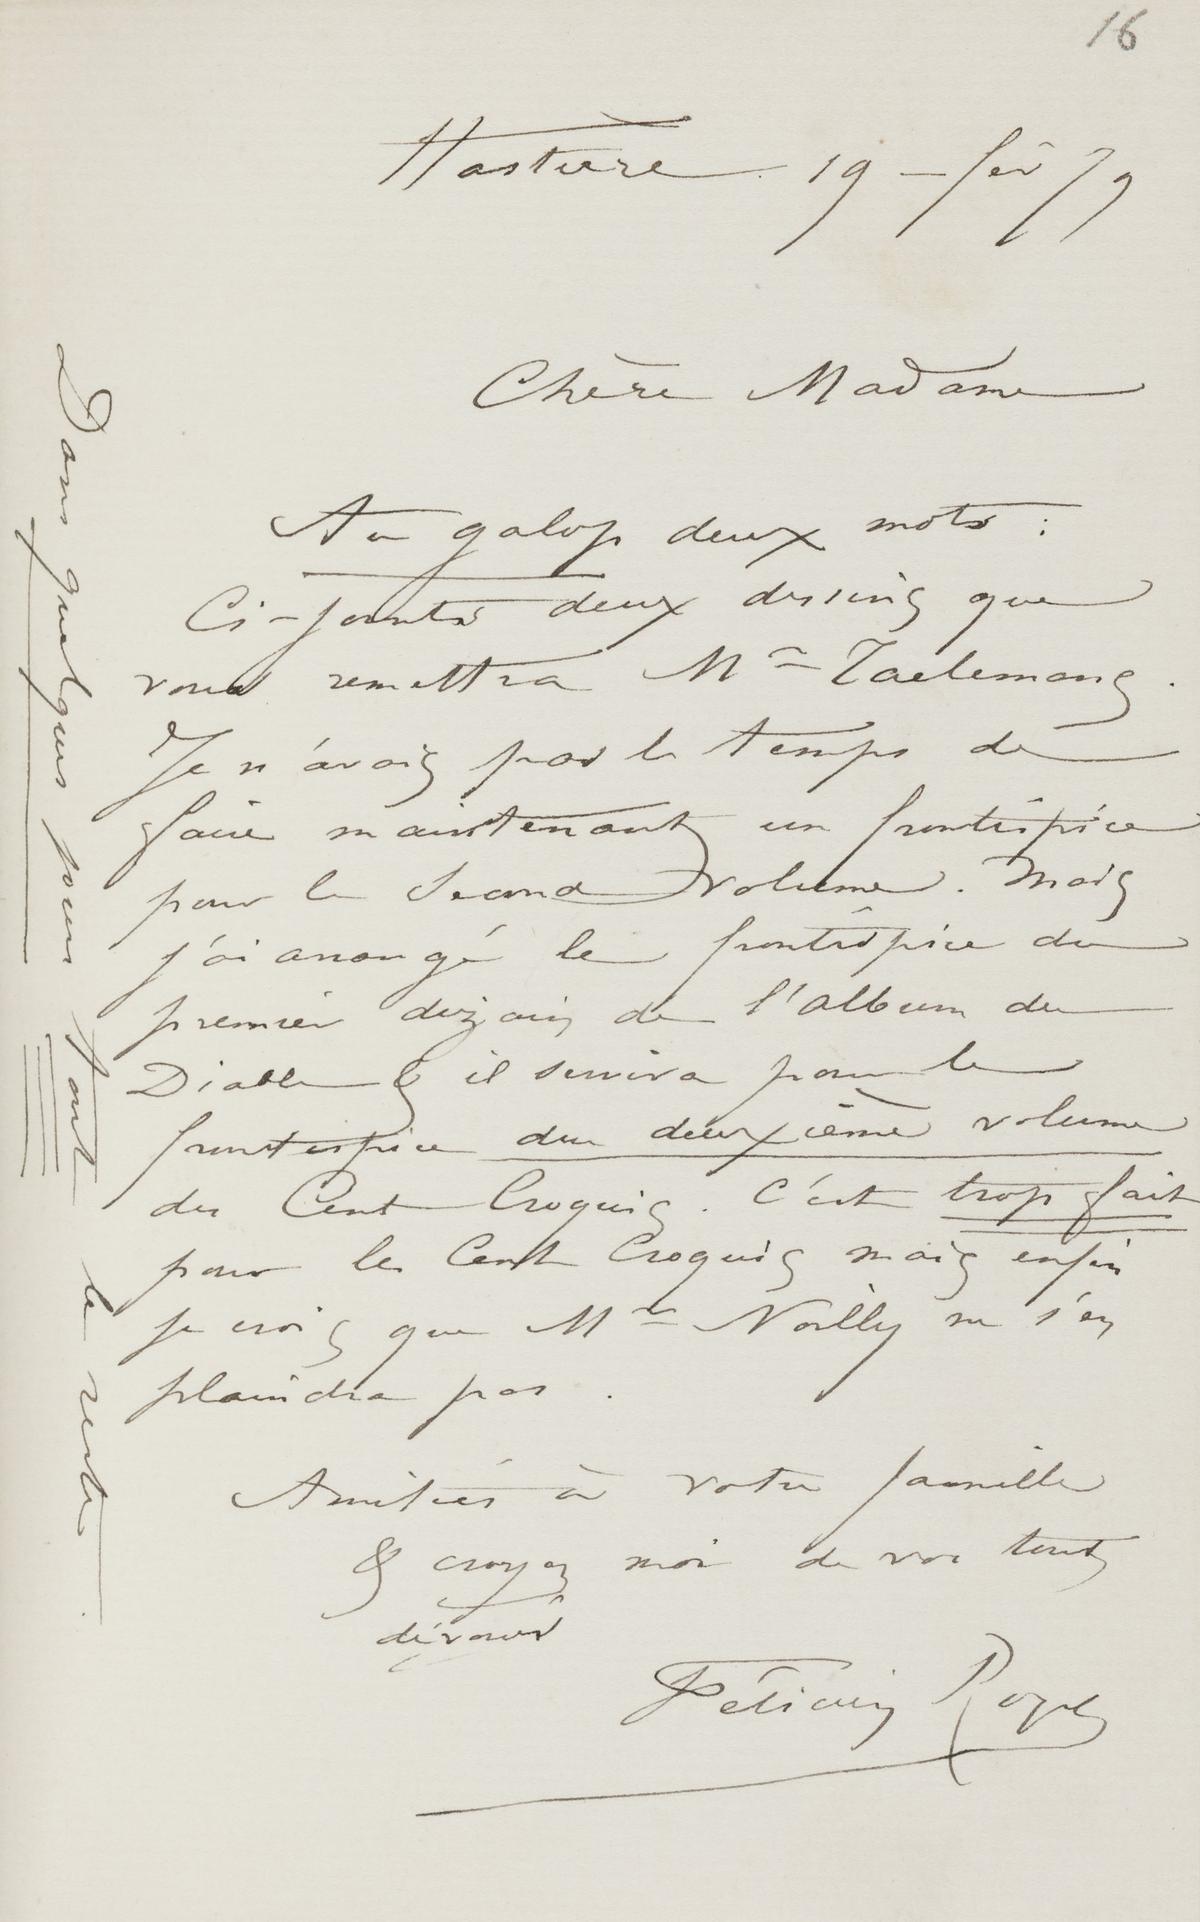 16
Hastière. 19 – fév 79
Chère Madame
Au galop deux mots :
Ci-joints deux dessins que
vous remettra Mr Taelemans.
Je n'avais pas le temps de
faire maintenant un frontispice
pour le second volume. Mais
j'ai arrangé le frontispice du
premier dizain de l'album du
Diable & il servira pour le
frontispice du deuxième volume
des Cent Croquis. C'est trop fait
pour les Cent Croquis mais enfin
je crois que Mr Noilly ne s'en
plaindra pas.
Amitiés à votre famille
& croyez moi de vos tout
dévoués
Félicien Rops
Dans quelques jours tout le reste.